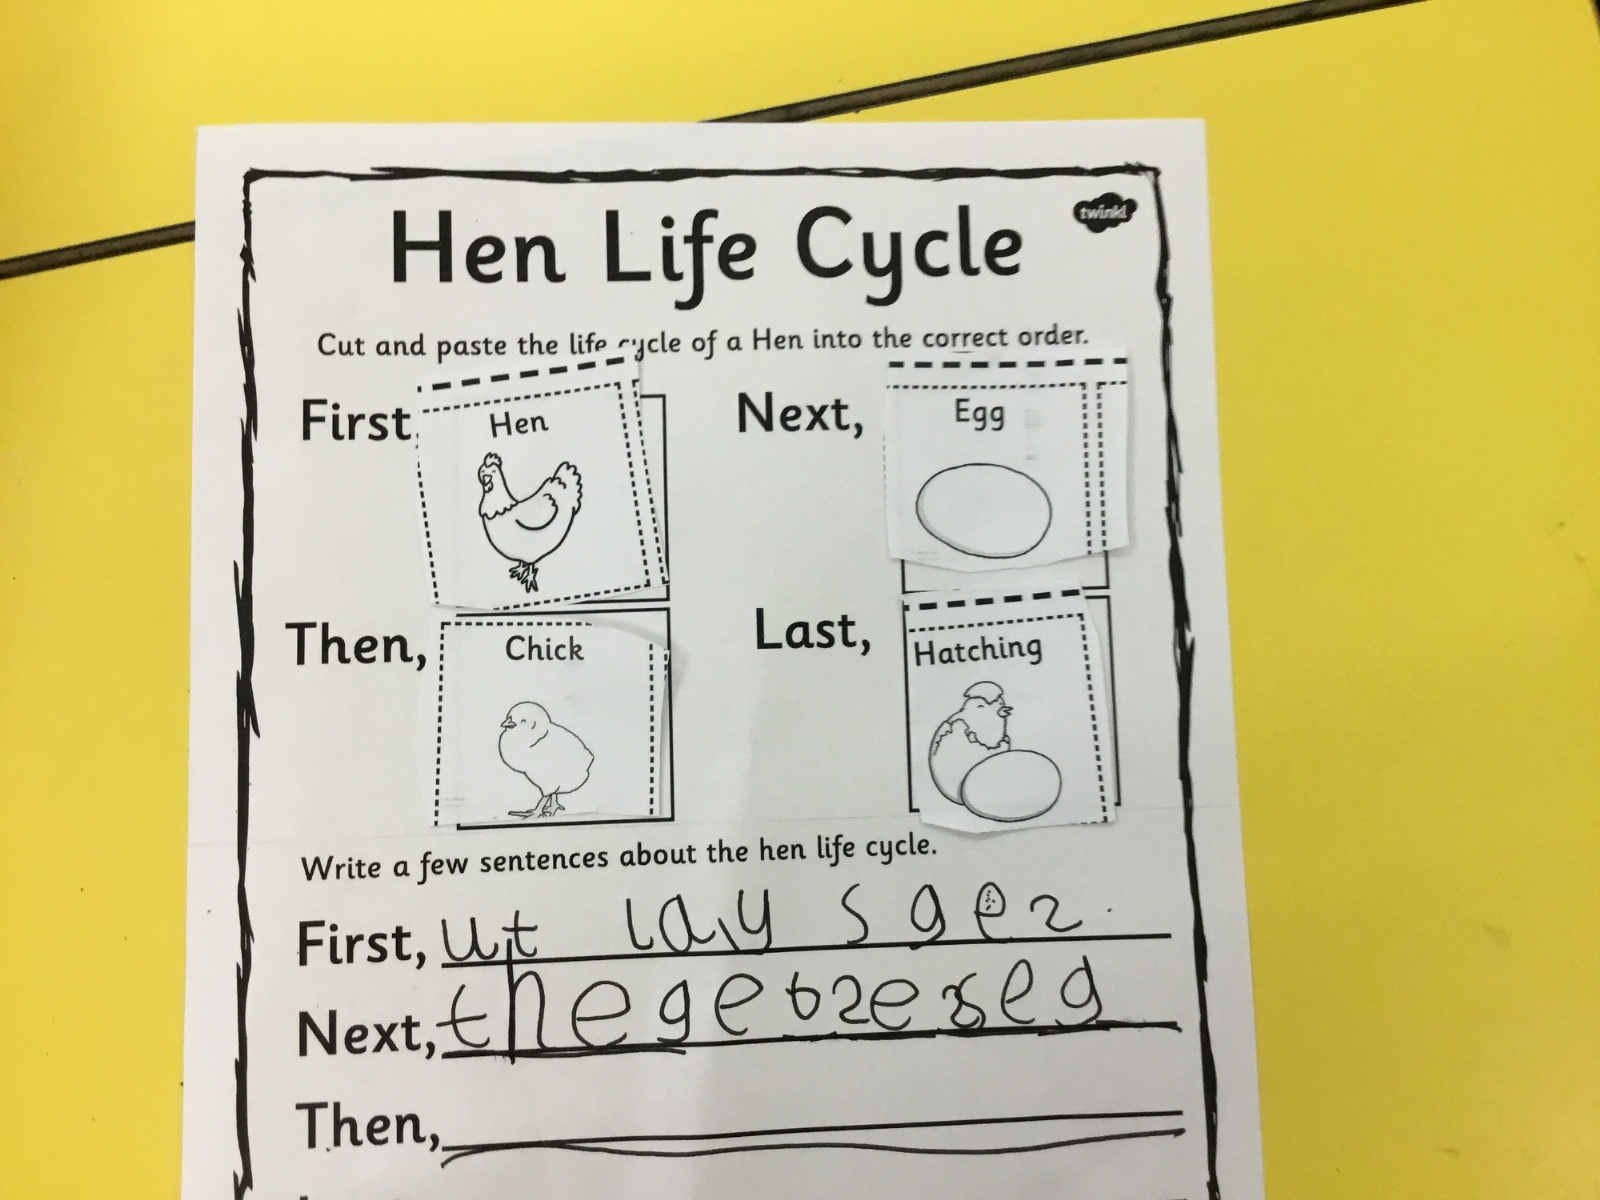 Hen Life Cycle
twinkl
Cut and paste the life cycle of a Hen into the correct order.
First,
Hen
Next,
Egg
Then,
Chick
Last,
Hatching
Write a few sentences about the hen life cycle.
First, ut lay s gez.
Next, the
Then,